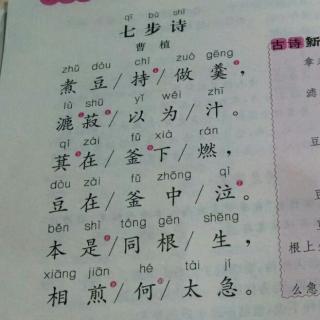 qī bù shī
七步诗
曹植
zhǔ dòu chí zuò gēng
煮豆/持/做羹，
lù shū yǐ wéi zhī
漉菽/以为/汁。
qí zài fǔ xià rán
萁在/釜下/燃，
dòu zài fǔ zhōng qì
豆在/釜中/泣。
běn shì tóng gēn shēng
本是/同根/生，
xiāng jiān hé tài jí
相煎/何/太急。
古诗新
拿
滤
豆
豆
根上
么急